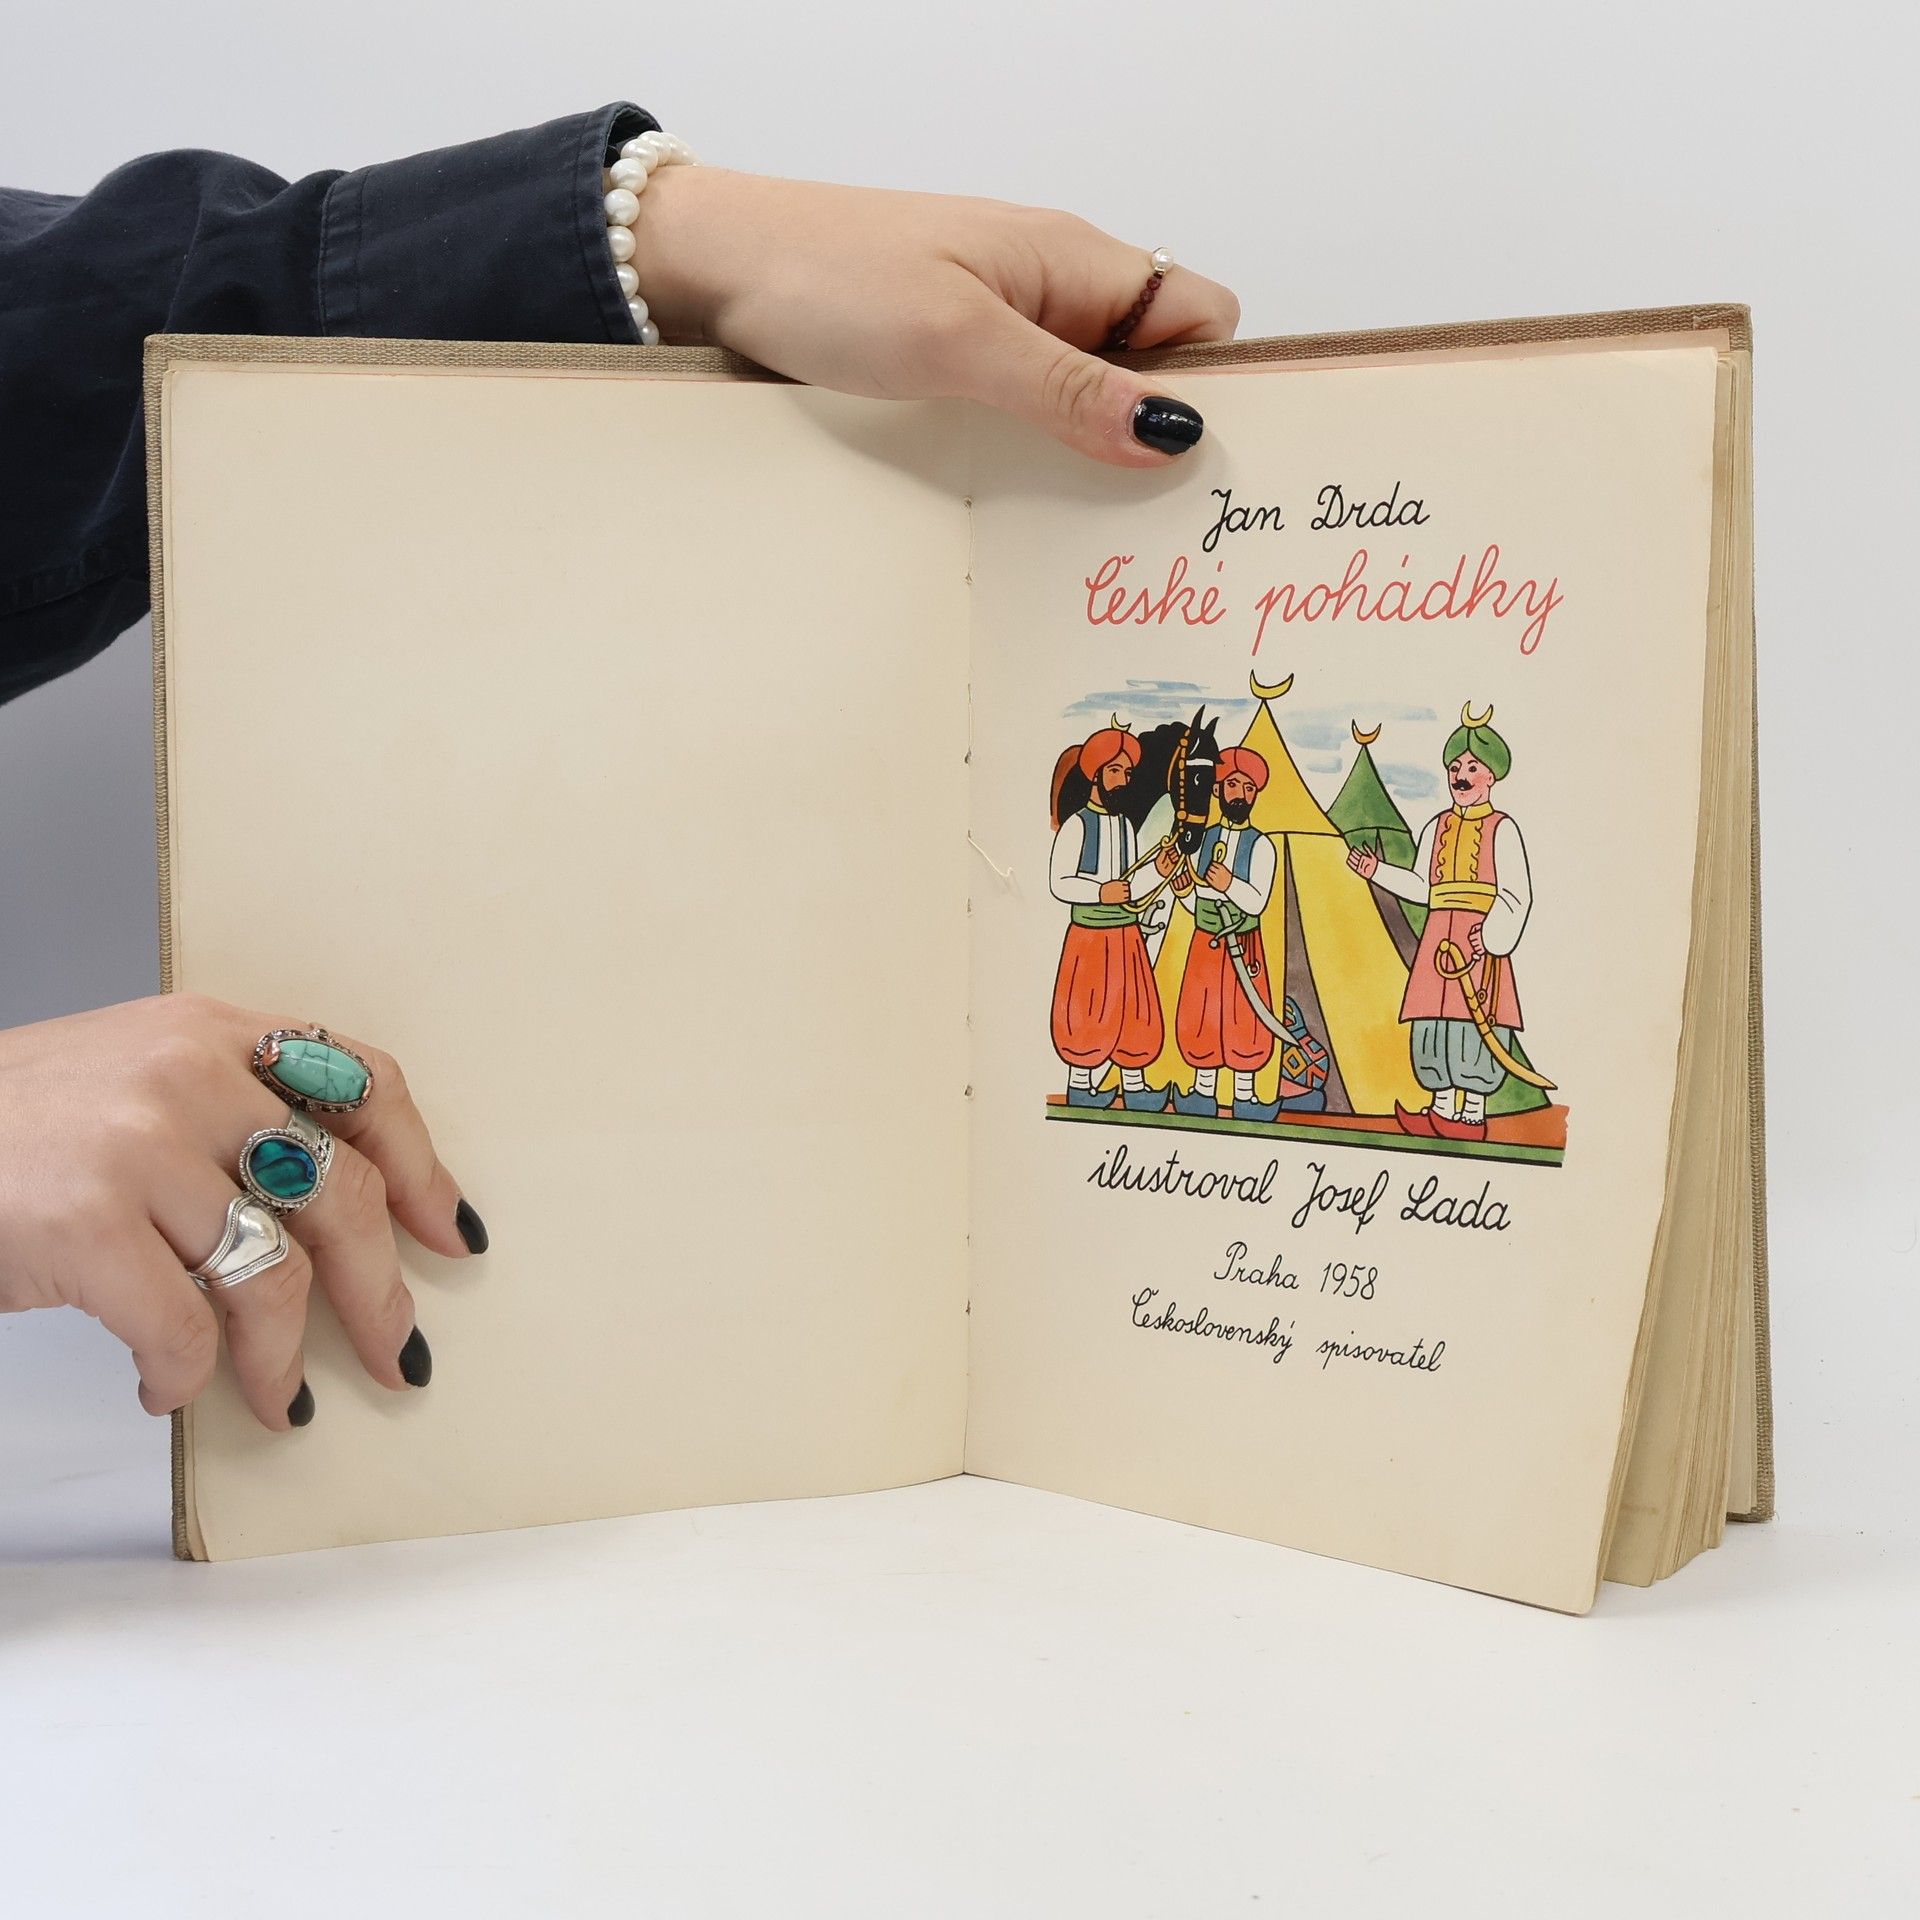 Jan Drda
České pohádky
ilustroval Josef Lada
Praha 1958
Československý spisovatel